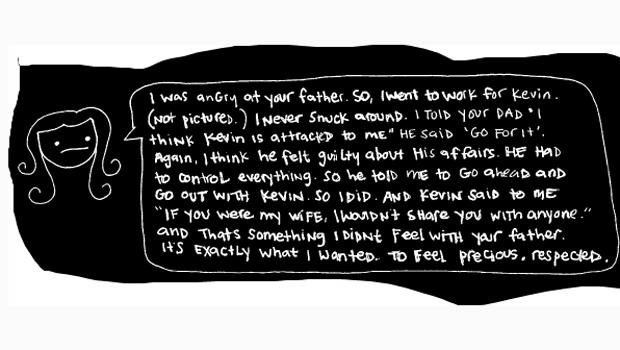 I was angry at your father. So, I went to work for Kevin.
(not pictured.) I never snuck around. I told your dad "I
think Kevin is attracted to me" He said 'Go for it'.
Again, I think he felt guilty about his affairs. He had
to control everything. So he told me to go ahead and
go out with Kevin. So I did. And Kevin said to me
"If you were my wife, I wouldn't share you with anyone."
and that's something I didnt feel with your father.
It's exactly what I wanted. To feel precious. respected.